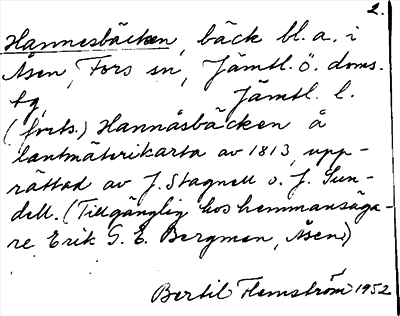 2.
Hannesbäcken, bäck bl. a. i
Åsen, Fors sn, Jämtl. ö. doms.
tg, Jämtl. l.
(forts.) Hannåsbäcken å
lantmäterikarta av 1813, upp-
rättad av J. Stagnell o. J. Sun-
dell. (Tillgänglig hos hemmansäga-
re Erik G. E. Bergman, Åsen)
Bertil Flemström 1952